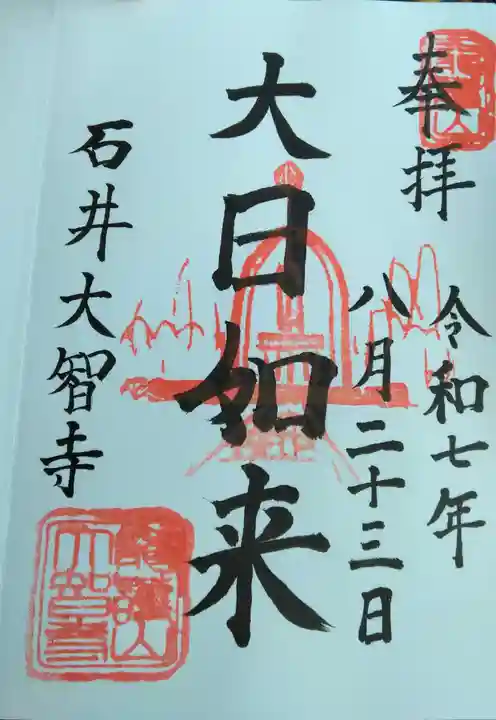 奉拝
令和七年
八月二十三日
大日如来
石井大智寺